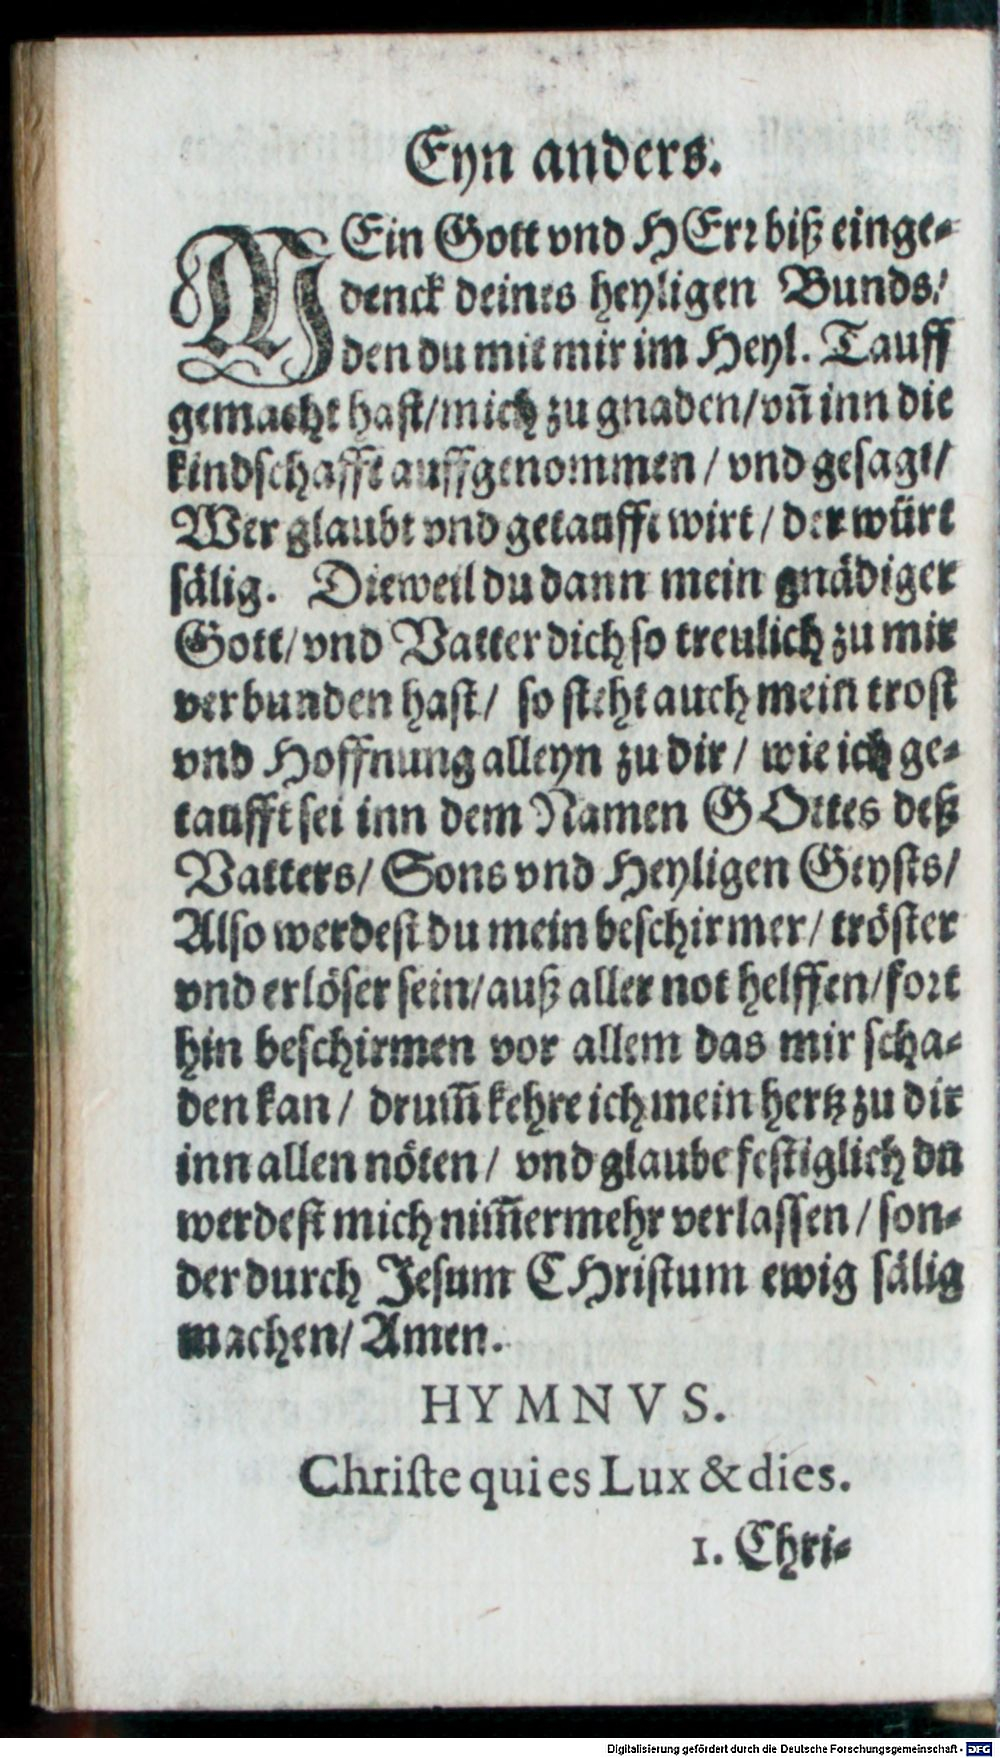 Eyn anders.
MEin Gott vnd HErr biß einge-
denck deines heyligen Bunds/
den du mit mir im Heyl. Tauff
gemacht hast/mich zu gnaden/vñ inn die
kindschafft auffgenommen/vnd gesagt/
Wer glaubt vnd getaufft wirt/der würt
sälig. Dieweil du dann mein gnädiger
Gott/vnd Vatter dich so treulich zu mir
verbunden hast/ so steht auch mein trost
vnd Hoffnung alleyn zu dir/ wie ich ge-
taufft sei inn dem Namen GOttes deß
Vatters/ Sons vnd Heyligen Geysts/
Also werdest du mein beschirmer/ tröster
vnd erlöser sein/auß aller not helffen/fort
hin beschirmen vor allem das mir scha-
den kan/ drum̃ kehre ich mein hertz zu dir
inn allen nöten/ vnd glaube festiglich du
werdest mich nim̃ermehr verlassen/ son-
der durch Jesum CHristum ewig sälig
machen/ Amen.
HYMNVS.
Christe qui es Lux & dies.
1. Chri-
Digitalisierung gefördert durch die Deutsche Forschungsgemeinschaft - DFG